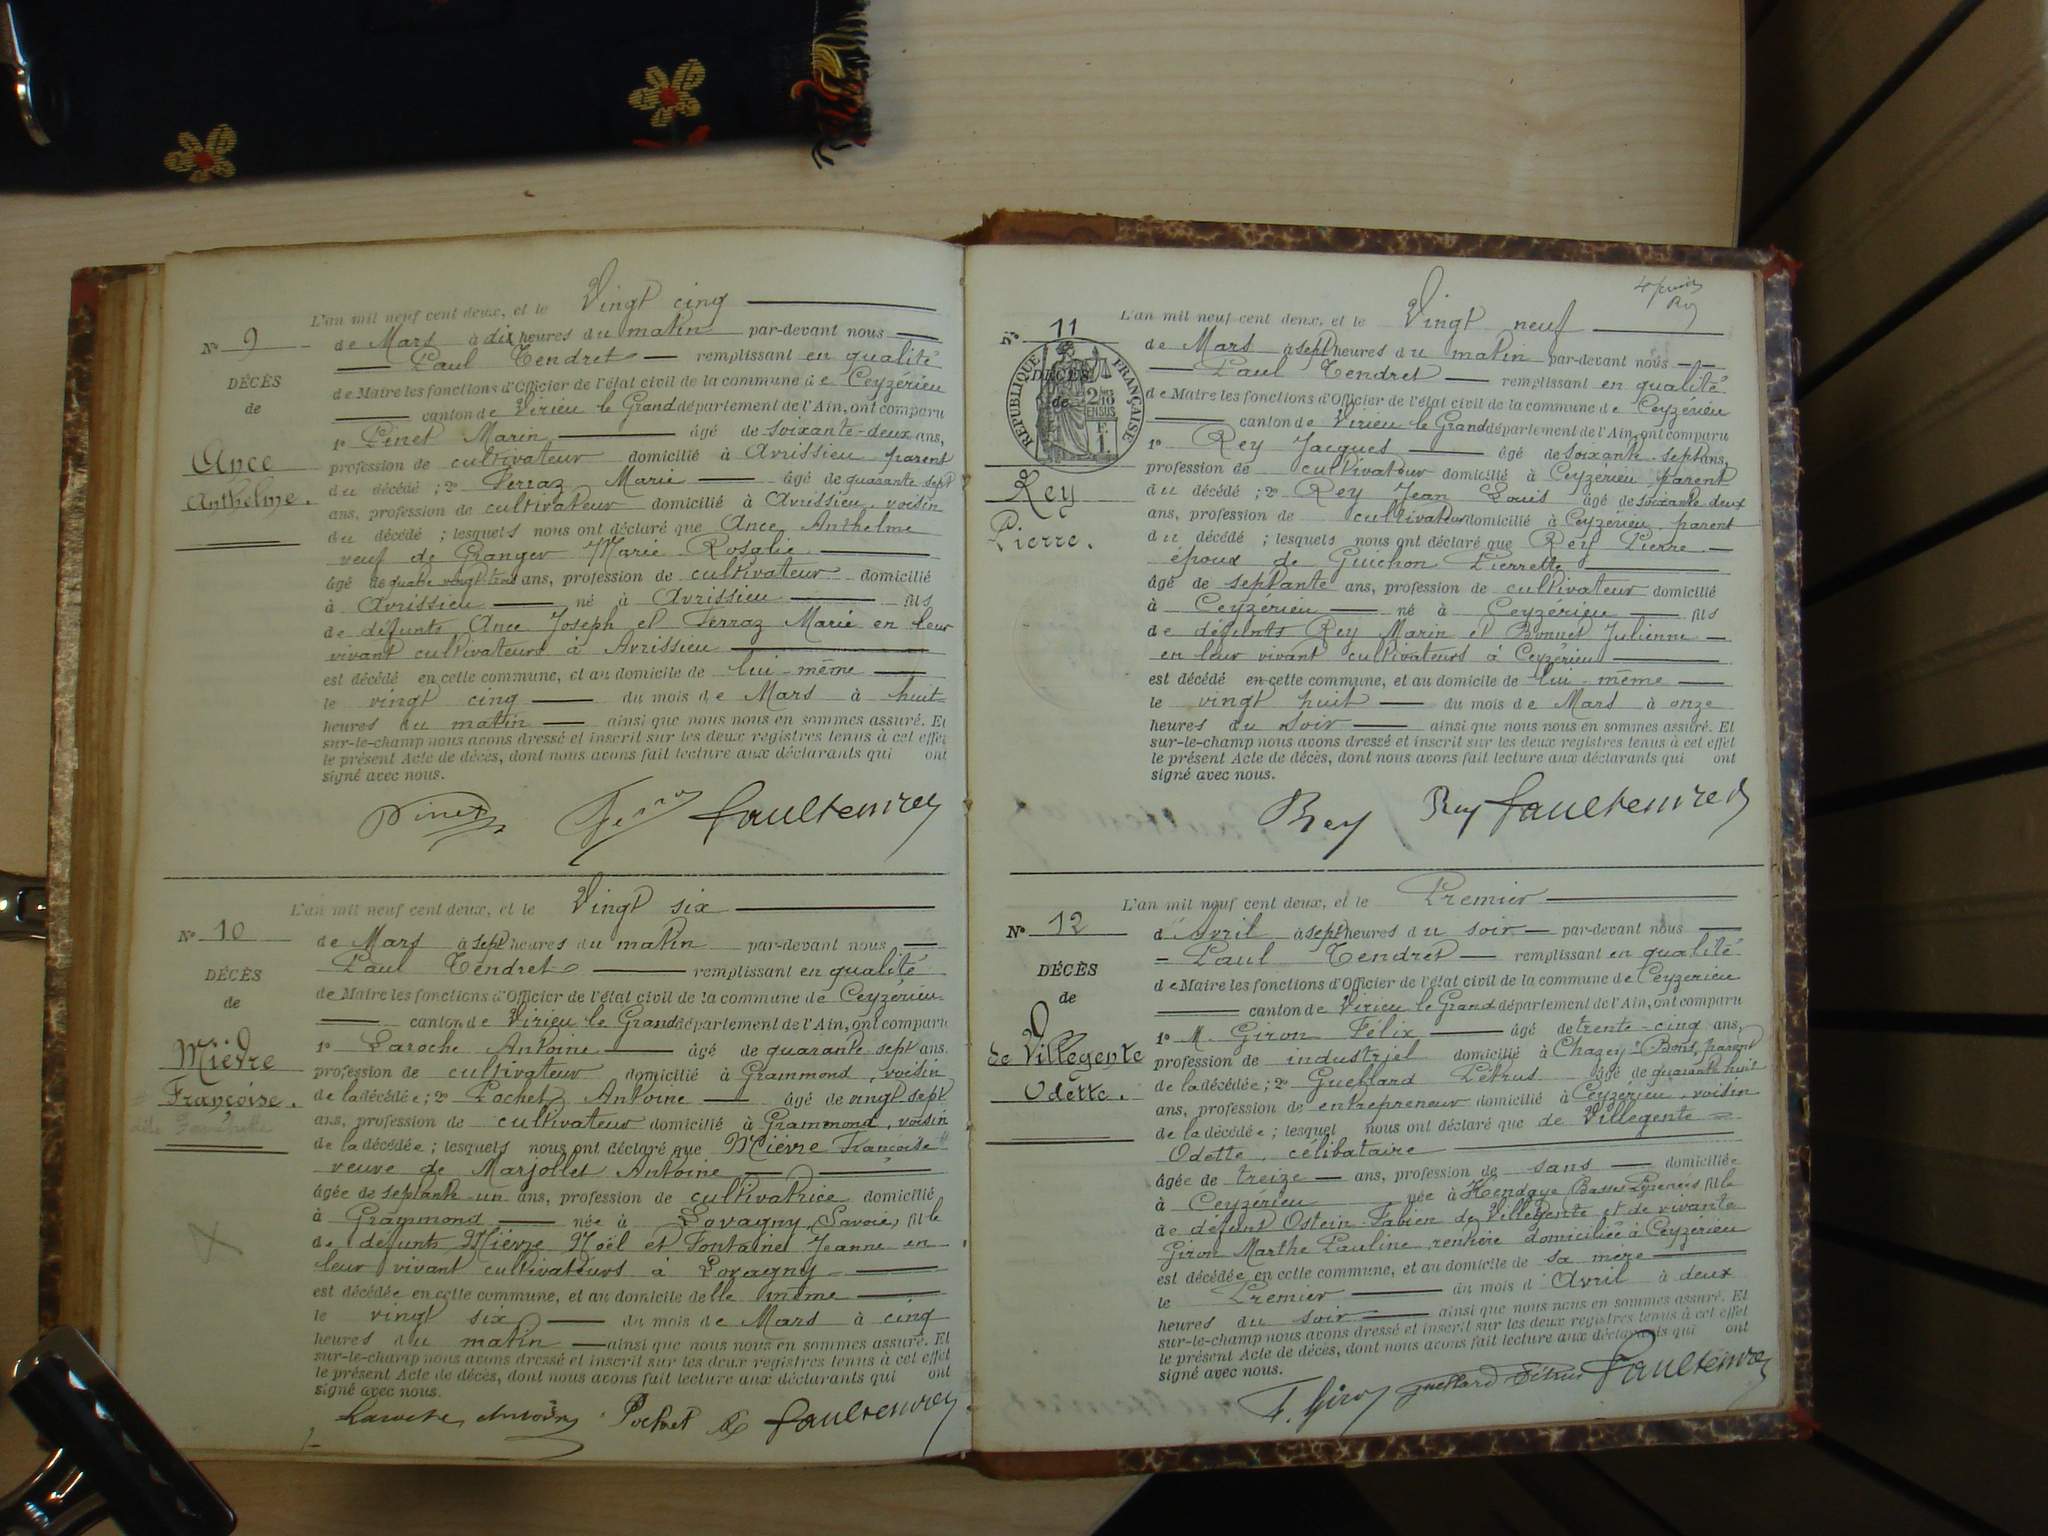 L'an mil neuf cent deux, et le Vingt cinq
N° 9
de Mars à dix heures du matin par-devant nous
Paul Tendret remplissant en qualité
DÉCÈS
de Maire les fonctions d'Officier de l'état civil de la commune de Ceyzérieu
de
canton de Virieu le Grand département de l'Ain, ont comparu
1° Pinet Marin âgé de soixante-deux ans,
Ance
profession de cultivateur domicilié à Avrissieu parent
Anthelme.
du décédé ; 2° Ferraz Marie âgé de quarante sept
ans, profession de cultivateur domicilié à Avrissieu, voisin
du décédé ; lesquels nous ont déclaré que Ance Anthelme
veuf de Granger Marie Rosalie
âgé de quatre vingt trois ans, profession de cultivateur domicilié
à Avrissieu né à Avrissieu fils
de défunts Ance Joseph et Ferraz Marie en leur
vivant cultivateurs à Avrissieu
est décédé en cette commune, et au domicile de lui-même
le vingt cinq du mois de Mars à huit
heures du matin ainsi que nous nous en sommes assuré. Et
sur-le-champ nous avons dressé et inscrit sur les deux registres tenus à cet effet
le présent Acte de décès, dont nous avons fait lecture aux déclarants qui ont
signé avec nous.
Pinet Paul Tendret
L'an mil neuf cent deux, et le Vingt six
N° 10
de Mars à sept heures du matin par-devant nous
Paul Tendret remplissant en qualité
DÉCÈS
de Maire les fonctions d'Officier de l'état civil de la commune de Ceyzérieu
de
canton de Virieu le Grand département de l'Ain, ont comparu
Mièvre
1° Laroche Antoine âgé de quarante sept ans.
profession de cultivateur domicilié à Grammond, voisin
Françoise.
de la décédée ; 2° Pochet Antoine âgé de vingt sept
ans, profession de cultivateur domicilié à Grammond, voisin
de la décédée ; lesquels nous ont déclaré que Mièvre Françoise
veuve de Marjollet Antoine
âgée de septante-un ans, profession de cultivatrice domicilié
à Grammond née à Lovagny, Savoie, fille
de défunts Mièvre Noël et Fontaine Jeanne en
leur vivant cultivateurs à Lovagny
est décédée en cette commune, et au domicile delle même
le vingt six du mois de Mars à cinq
heures du matin ainsi que nous nous en sommes assuré. Et
sur-le-champ nous avons dressé et inscrit sur les deux registres tenus à cet effet
le présent Acte de décès, dont nous avons fait lecture aux déclarants qui ont
signé avec nous.
Laroche Antoine Pochet A Paul Tendret
L'an mil neuf cent deux, et le Vingt neuf
N° 11
de Mars à sept heures du matin par-devant nous
Paul Tendret remplissant en qualité
RÉPUBLIQUE FRANÇAISE
DÉCÈS
de
de Maire les fonctions d'Officier de l'état civil de la commune de Ceyzérieu
canton de Virieu le Grand département de l'Ain, ont comparu
1° Rey Jacques âgé de soixante-sept ans,
profession de cultivateur domicilié à Ceyzérieu, parent
Rey
du décédé ; 2° Rey Jean Louis âgé de soixante deux
ans, profession de cultivateur domicilié à Ceyzérieu, parent
Pierre.
du décédé ; lesquels nous ont déclaré que Rey Pierre
époux de Guichon Pierrette
âgé de septante ans, profession de cultivateur domicilié
à Ceyzérieu né à Ceyzérieu fils
de défunts Rey Marin et Bonnet Julienne
en leur vivant cultivateurs à Ceyzérieu
est décédé en cette commune, et au domicile de lui-même
le vingt huit du mois de Mars à onze
heures du soir ainsi que nous nous en sommes assuré. Et
sur-le-champ nous avons dressé et inscrit sur les deux registres tenus à cet effet
le présent Acte de décès, dont nous avons fait lecture aux déclarants qui ont
signé avec nous.
Rey Rey Paul Tendret
L'an mil neuf cent deux, et le Premier
N° 12
d'Avril à sept heures du soir par-devant nous
Paul Tendret remplissant en qualité
DÉCÈS
de Maire les fonctions d'Officier de l'état civil de la commune de Ceyzérieu
de
canton de Virieu le Grand département de l'Ain, ont comparu
1° M. Giron Félix âgé de trente-cinq ans,
de Villegente
profession de industriel domicilié à Chazey-Bons, parent
Odette.
de la décédée ; 2° Gueffard Pétrus âgé de quarante huit
ans, profession de entrepreneur domicilié à Ceyzérieu, voisin
de la décédée ; lesquel nous ont déclaré que de Villegente
Odette, célibataire
âgée de treize ans, profession de sans domiciliée
à Ceyzérieu née à Hendaye Basses Pyrenées fille
de défunt Ostein Fabien de Villegente et de vivante
Giron Marthe Pauline, rentière domiciliée à Ceyzérieu
est décédée en cette commune, et au domicile de sa mère
le Premier du mois d'Avril à deux
heures du soir ainsi que nous nous en sommes assuré. Et
sur-le-champ nous avons dressé et inscrit sur les deux registres tenus à cet effet
le présent Acte de décès, dont nous avons fait lecture aux déclarants qui ont
signé avec nous.
F. Giron Gueffard Pétrus Paul Tendret